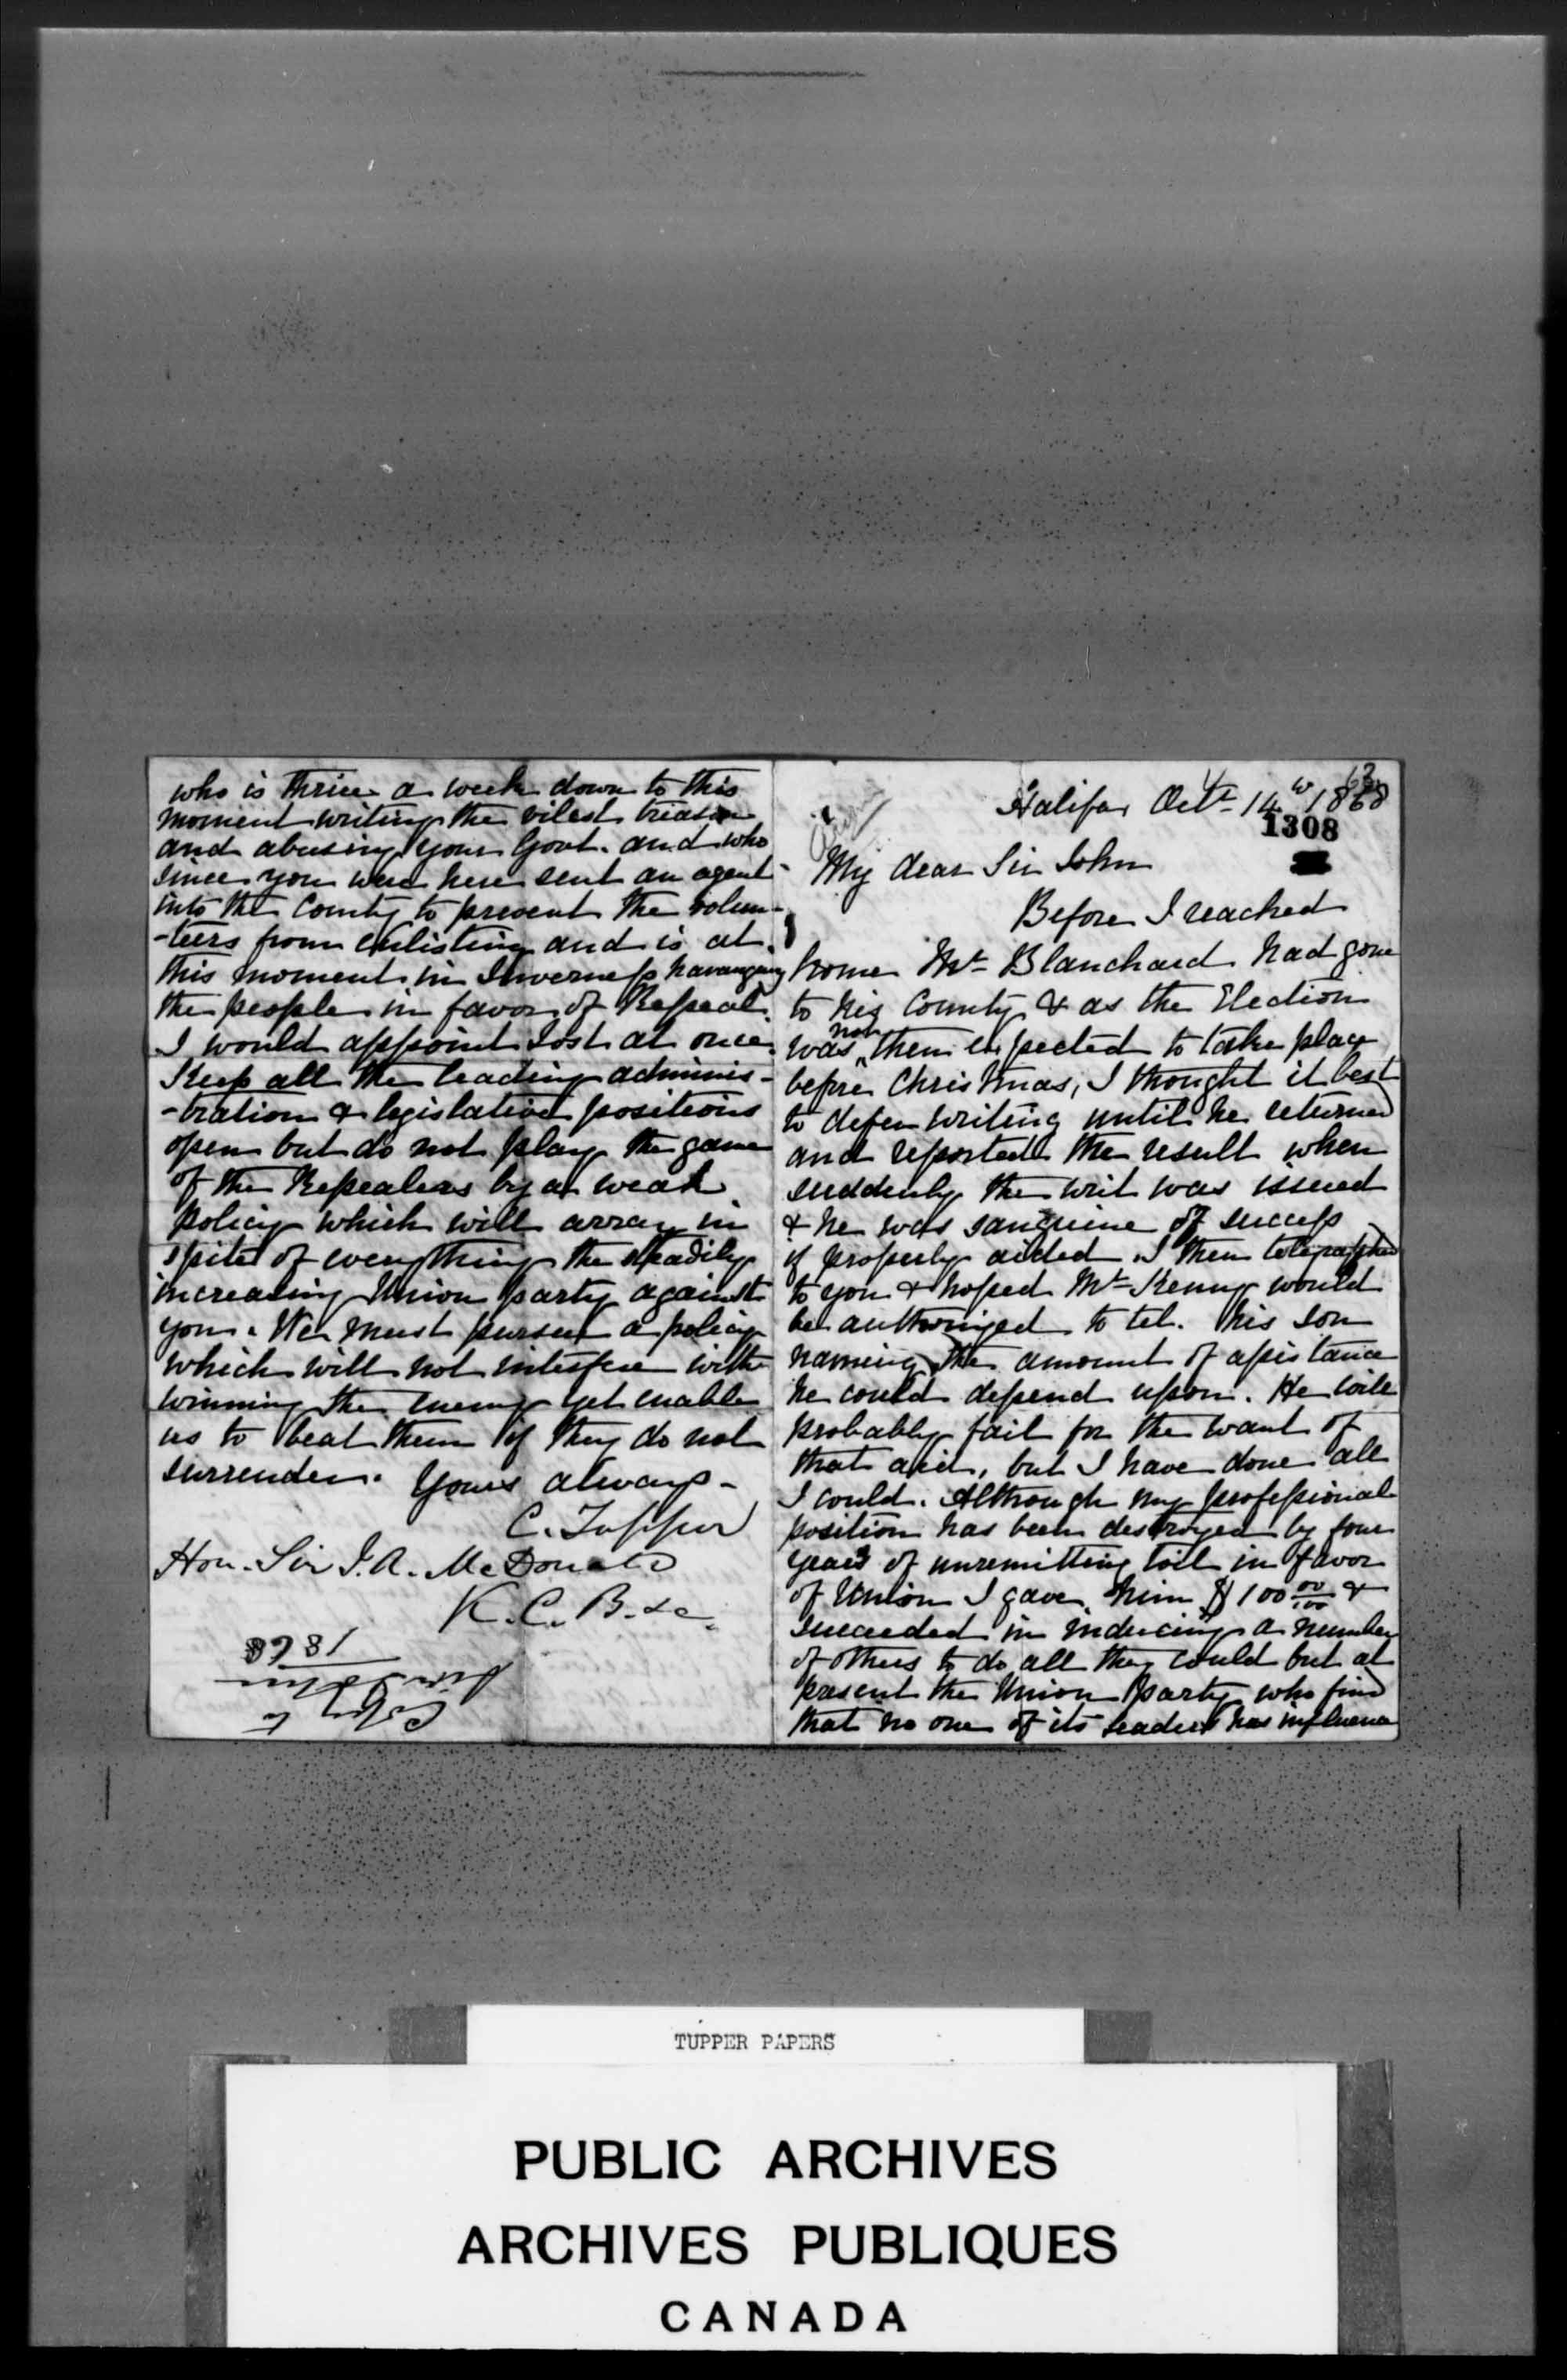 who is thrice a week down to this
moment writing the vilest treason
and abusing your Govt. and who
since you were here sent an agent
into the County to prevent the volun-
-teers from enlisting and is at
this moment in Inverness haranguing
the people in favor of Repeal.
I would appoint Tost at once.
Keep all the leading adminis-
-tration & legislative positions
open but do not play the game
of the Repealers by a weak
policy which will array in
spite of everything the steadily
increasing Union party against
you. We must pursue a policy
which will not interfere with
winning the enemy yet enable
us to beat them if they do not
surrender. Yours always -
C. Tupper
Hon. Sir J. A. McDonald
K. C. B. &c.
1868
Sir John
Copy to
Halifax Octr 14th 1868
63
1308
My dear Sir John
Before I reached
home Mr Blanchard had gone
to his County & as the Election
was not then expected to take place
before Christmas, I thought it best
to defer writing until he returned
and reported the result when
suddenly the writ was issued
& he was sanguine of success
if properly aided. I then telegraphed
to you & hoped Mr Kenny would
be authorized to tel. his son
naming the amount of assistance
he could depend upon. He will
probably fail for the want of
that aid, but I have done all
I could. Although my professional
position has been destroyed by four
years of unremitting toil in favor
of Union I gave him $100 00/100 &
succeeded in inducing a number
of others to do all they could but at
present the Union party who find
that no one of its leaders has influence
TUPPER PAPERS
PUBLIC ARCHIVES
ARCHIVES PUBLIQUES
CANADA